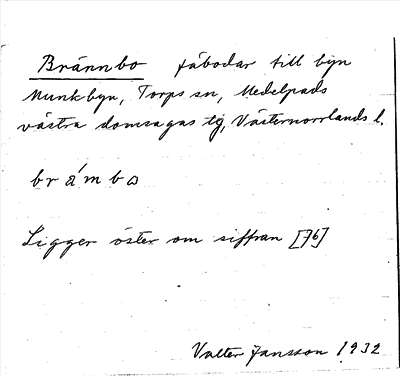 Brännbo fäbodar till byn
Munkbyn, Torps sn, Medelpads
västra domsagas tg, Västernorrlands l.
brä́mbɷ
Ligger öster om siffran [76]
Valter Jansson 1932